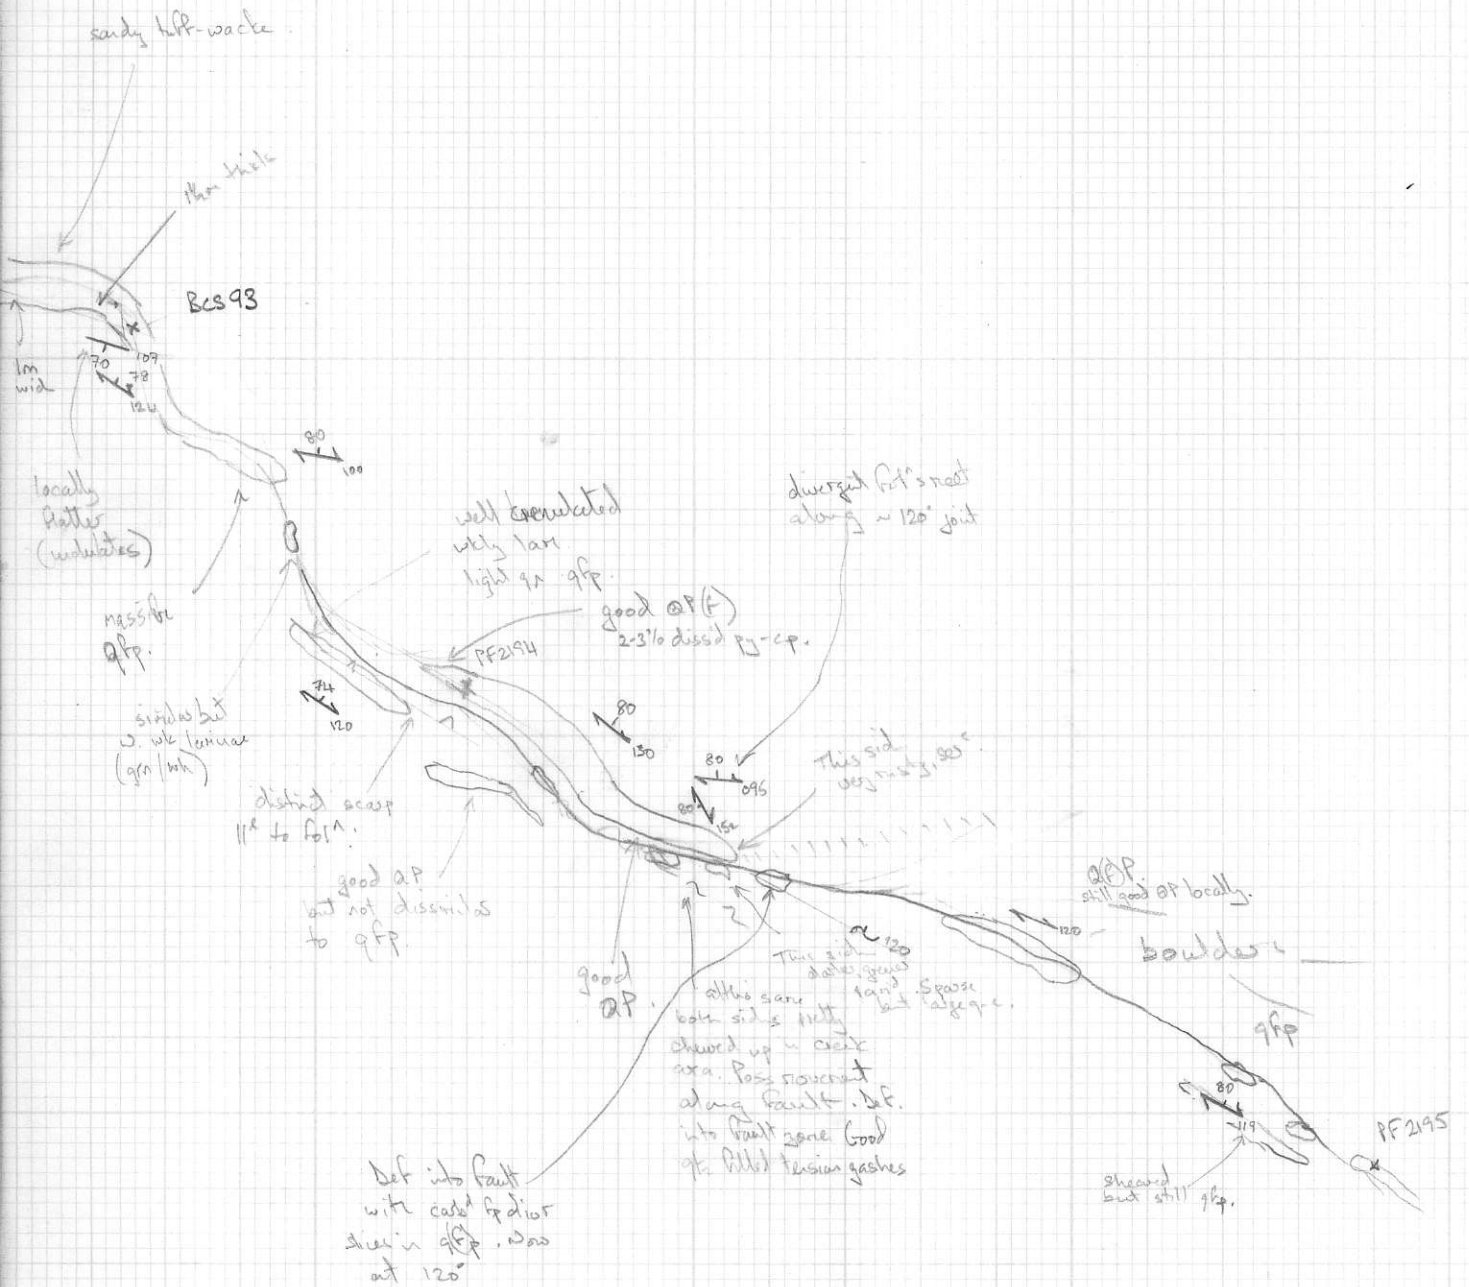 sandy tuff-wacke
1½m thick
BCS93
1m
wid
70
107
78
124
80
100
locally
flatter
(undulates)
massive
qfp.
well crenulated
wkly lam
light gn qfp.
divergent fol^n's meet
along ~ 120° joint
good QP(f)
2-3% diss'd py-cp.
PF2194
74
120
similar but
w. wk laminae
(grn/wh)
80
130
This side
very rusty,
80
095
80
152
distinct scarp
||el to fol^n.
good QP
but not dissimilar
to qfp
Q(F)P.
still good QP locally.
120
boulders
~ 120
This side
good
QP.
Sparse
but large q-e.
both sides pretty
chewed up in creek
area. Poss movement
along fault. Def.
into fault zone. Good
qtz filled tension gashes
qfp
80
119
PF2195
sheared
but still qfp.
Def into fault
with carb'd fp dior
slices in q(F)p. Now
at 120°